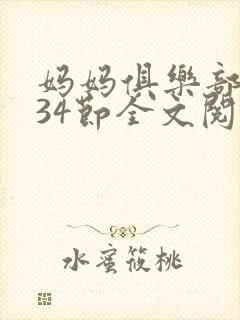 妈妈俱樂部
34節全文閱
水蜜筱桃